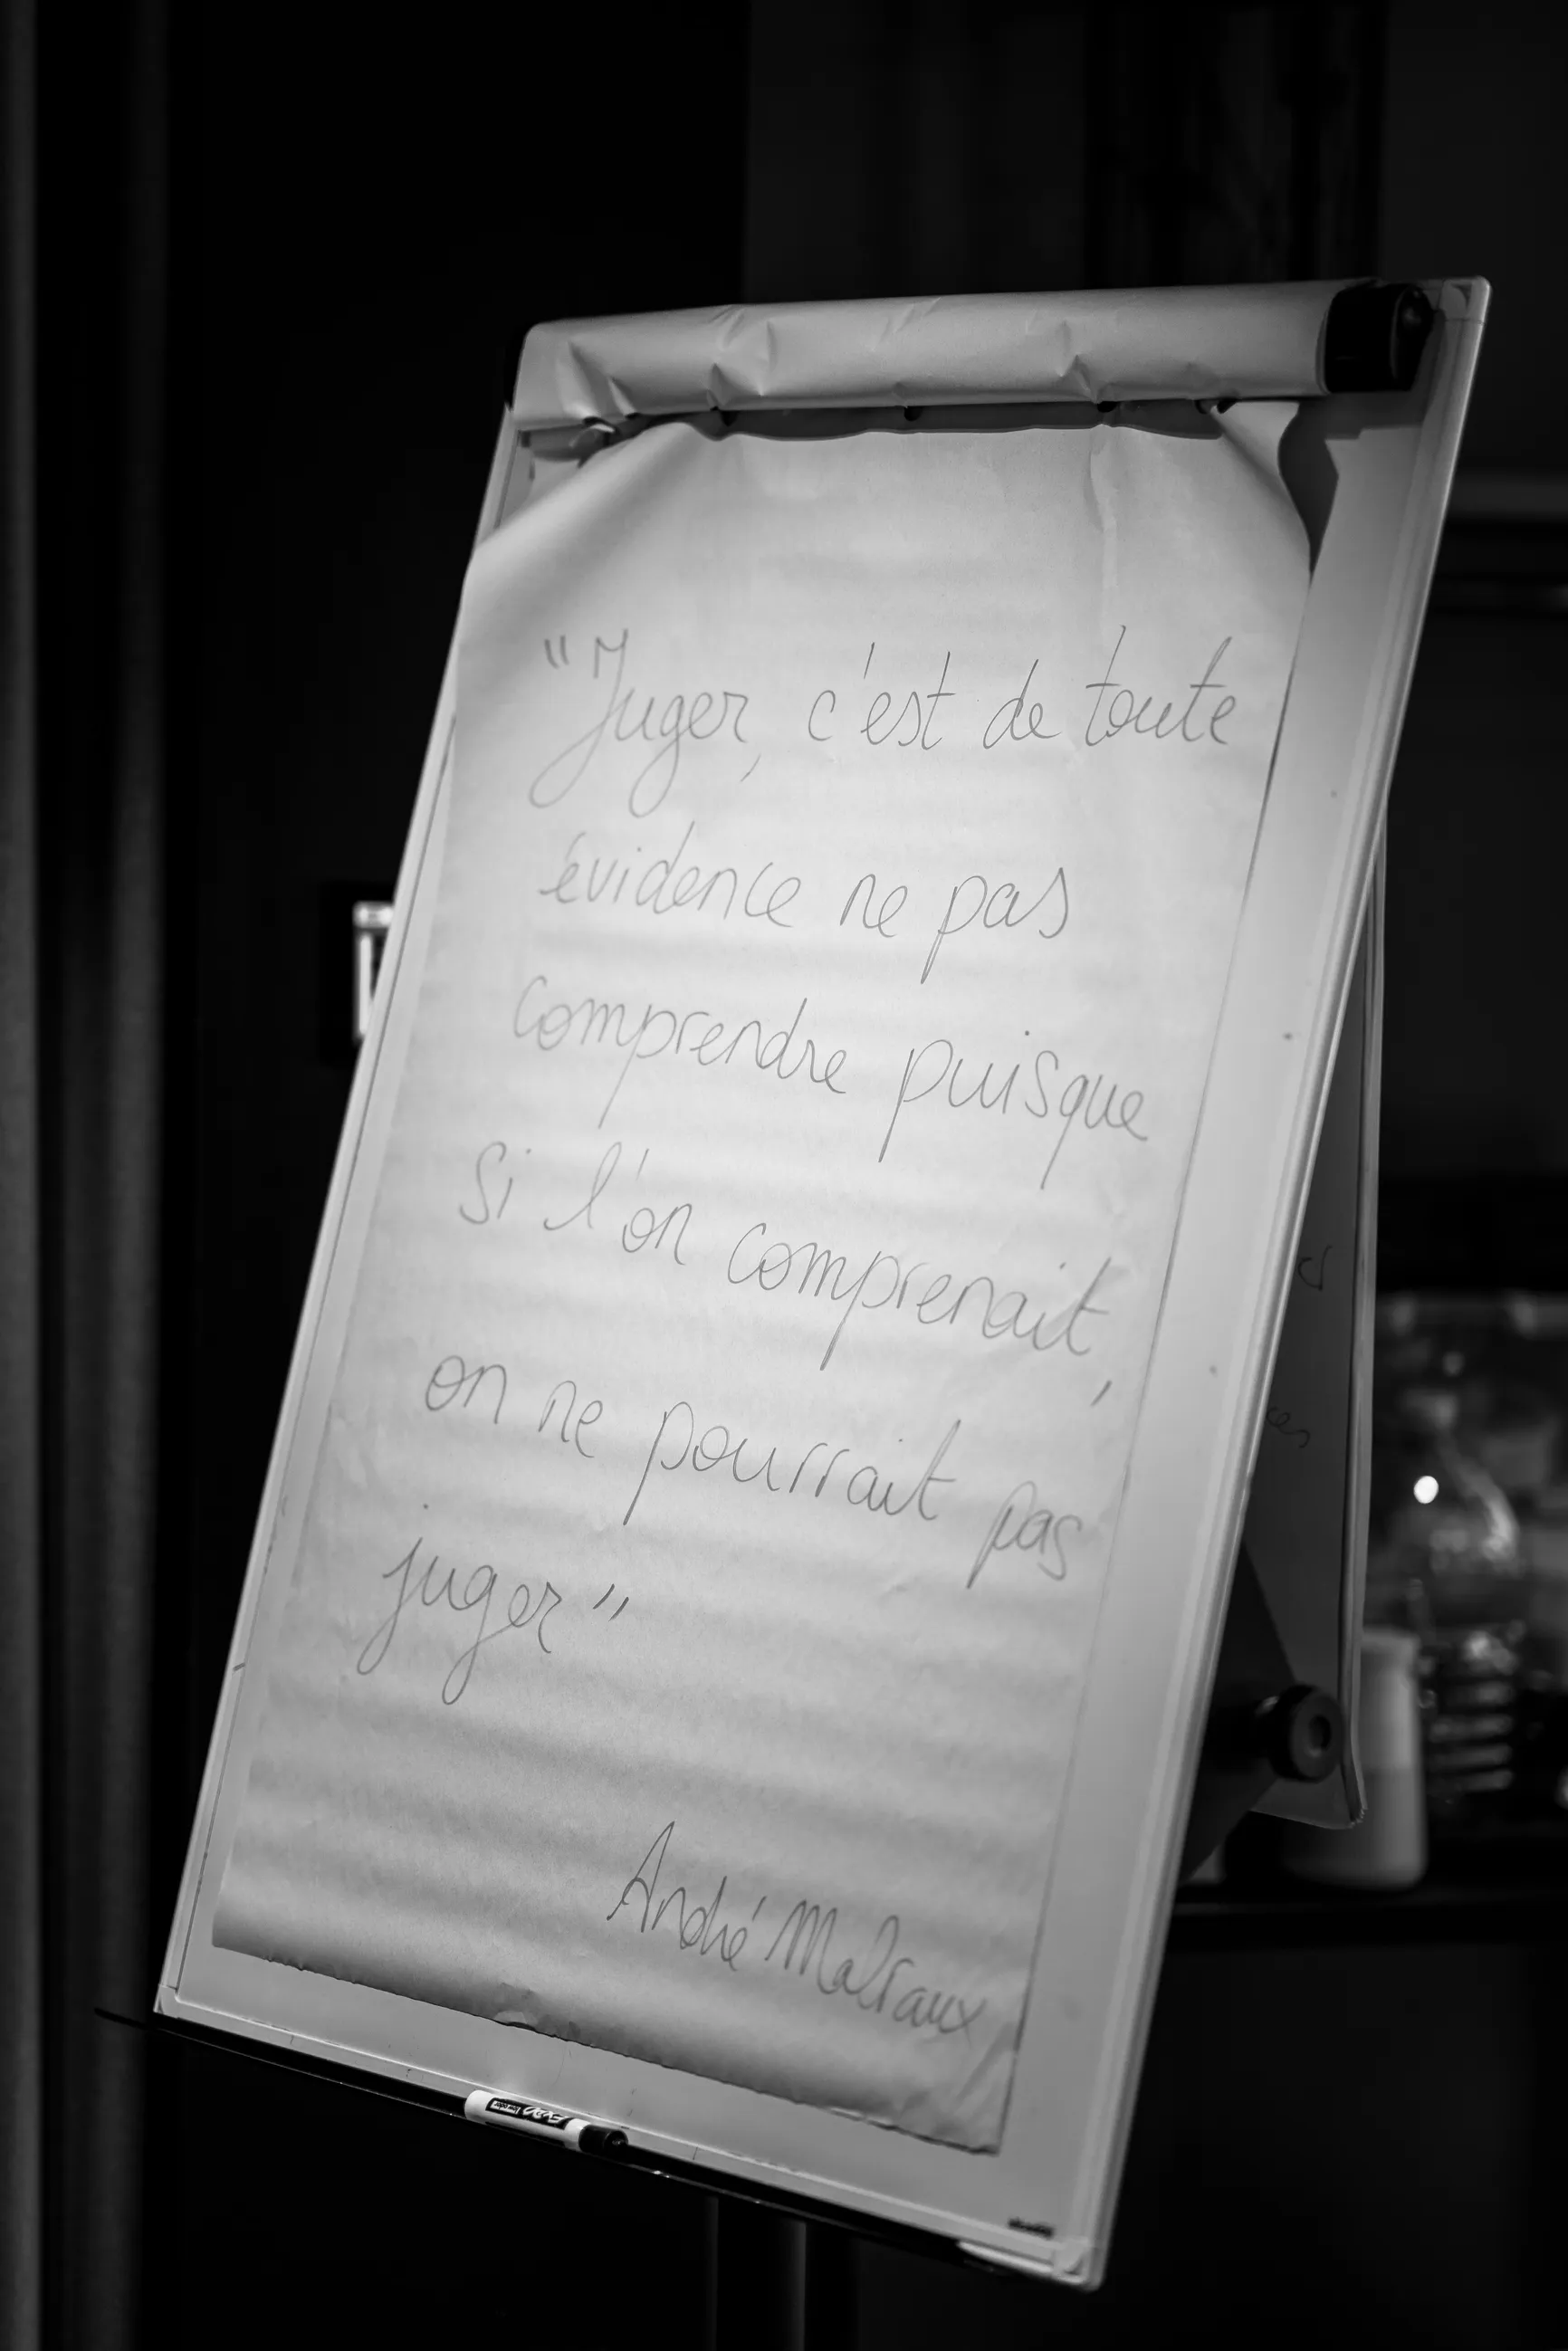 "Juger, c'est de toute
évidence ne pas
comprendre puisque
si l'on comprenait,
on ne pourrait pas
juger"
André Malraux